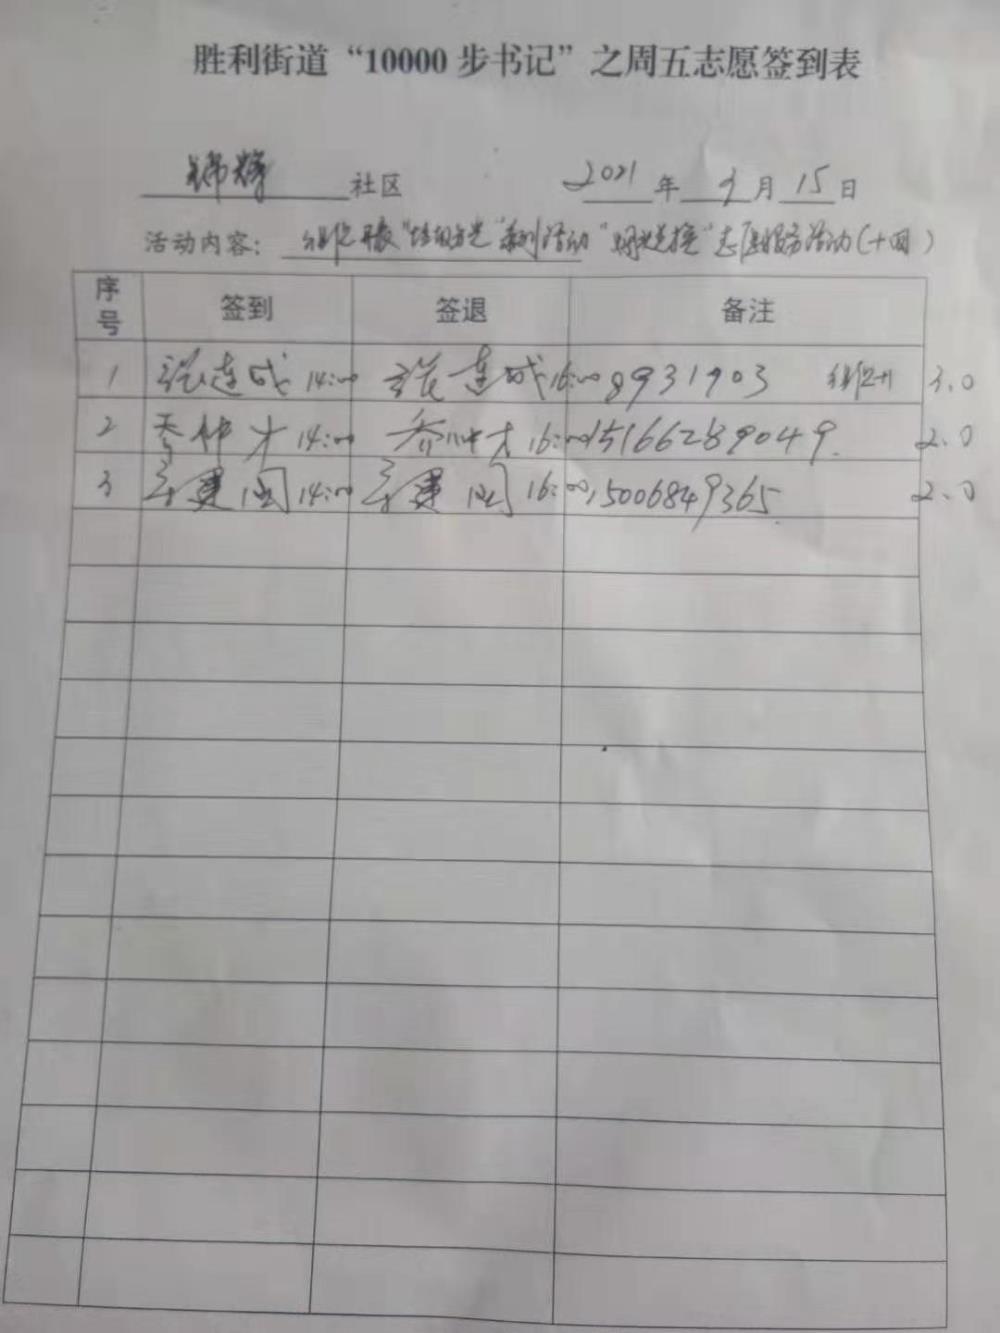 胜利街道“10000步书记”之周五志愿签到表
锦辉 社区 2021 年 月 15 日
活动内容: 开展 系列活动 志愿服务活动(十四)
序号 签到 签退 备注
1 张连成 14:00 张连成 16:00 8931903 3.0
2 乔仲才 14:00 乔仲才 16:00 15166289049 2.0
3 建国 14:00 建国 16:00 15006849365 2.0